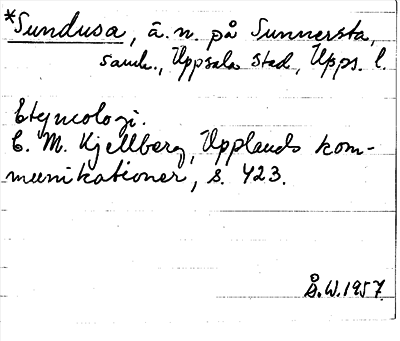 *Sundusa, ä.n. på Sunnersta,
samh., Uppsala stad, Upps. l.
Etymologi.
C. M. Kjellberg, Upplands kom-
munikationer, s. 423.
Å.W.1957.